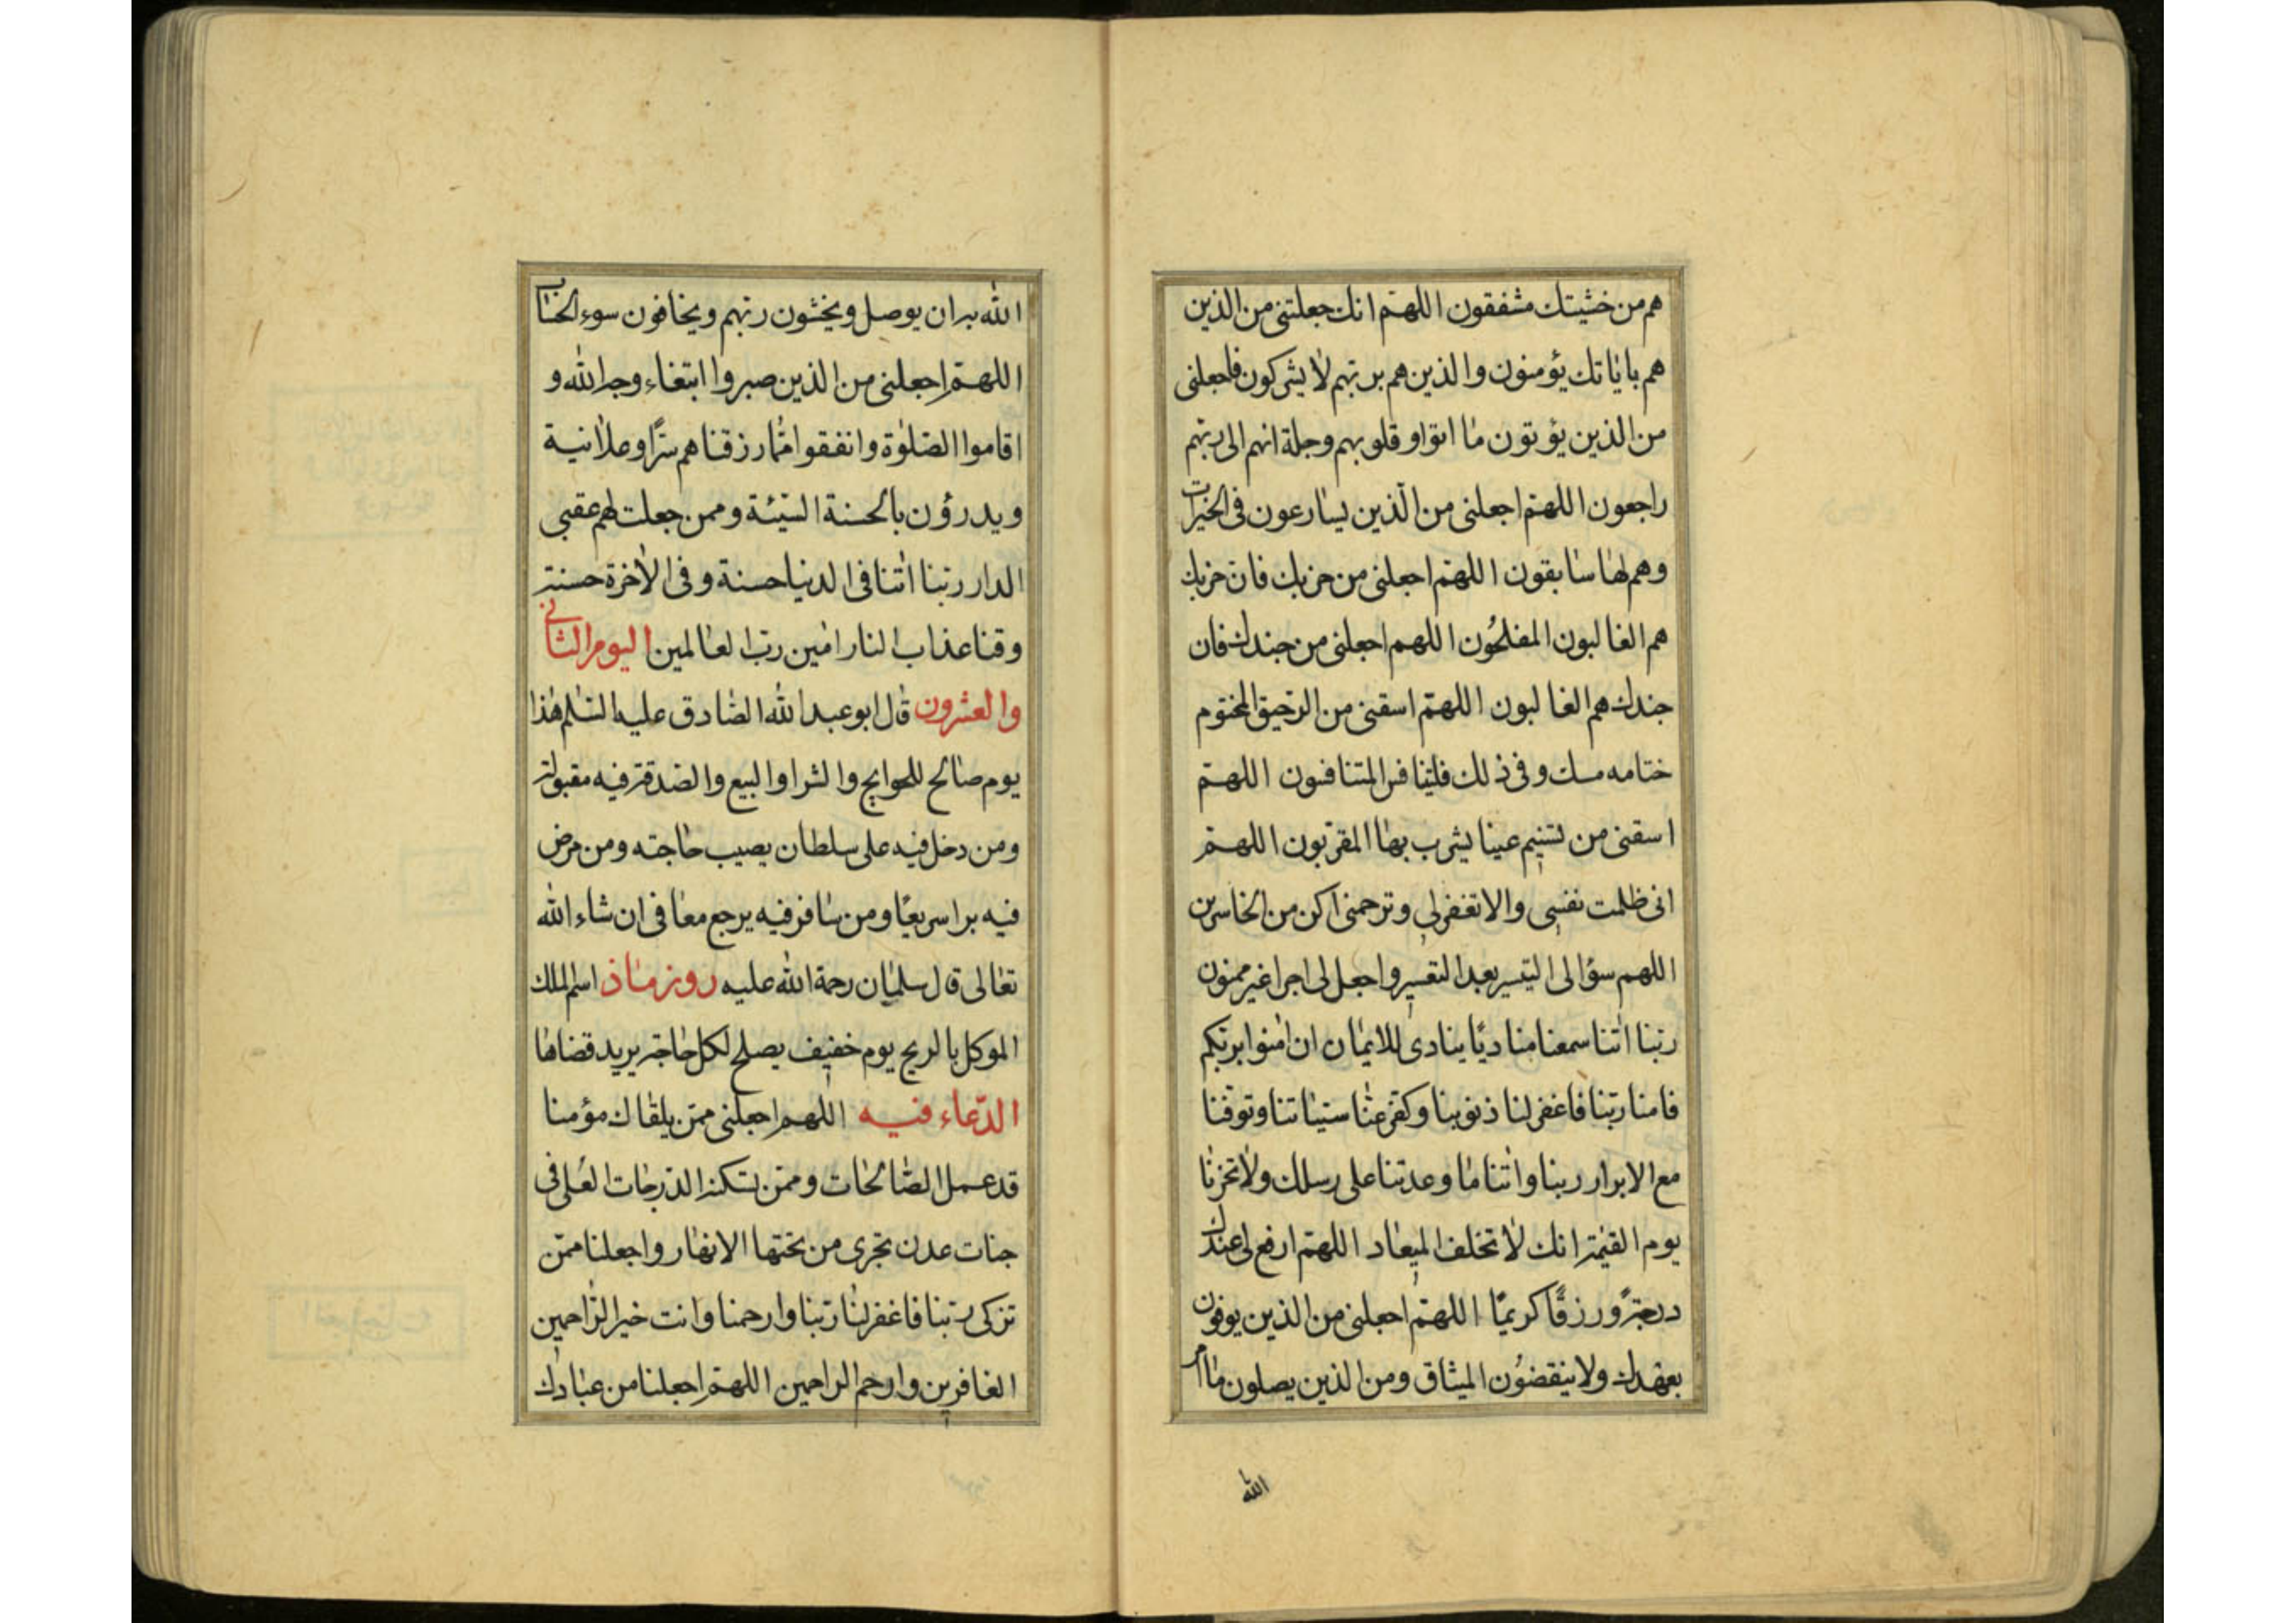 هم من خشيتك مشفقون اللهم انك جعلتنى من الذين
هم باياتك يؤمنون والذين هم بربهم لا يشركون فاجعلنى
من الذين يؤتون ما اتوا و قلوبهم وجلة انهم الى ربهم
راجعون اللهم اجعلنى من الذين يسارعون فى الخيرات
وهم لها سابقون اللهم اجعلنى من حزبك فان حزبك
هم الغالبون المفلحون اللهم اجعلنى من جندك فان
جندك هم الغالبون اللهم اسقنى من الرحيق المختوم
ختامه مسك وفى ذلك فليتنافس المتنافسون اللهم
اسقنى من تسنيم عينا يشرب بها المقربون اللهم
انى ظلمت نفسى والا تغفر لى وترحمنى اكن من الخاسرين
اللهم سؤالى التيسير بعد التعسير واجعل لى اجرا غير ممنون
ربنا اننا سمعنا مناديًا ينادى للايمان ان امنوا بربكم
فامنا ربنا فاغفر لنا ذنوبنا وكفر عنا سيئاتنا وتوفنا
مع الابرار ربنا واتنا ما وعدتنا على رسلك ولا تخزنا
يوم القيمة انك لا تخلف الميعاد اللهم ارفع لى عندك
درجةً ورزقًا كريمًا اللهم اجعلنى من الذين يوفون
بعهدك ولا ينقضون الميثاق ومن الذين يصلون ما امر
الله
الله به ان يوصل ويخشون ربهم ويخافون سوء الحساب
اللهم اجعلنى من الذين صبروا ابتغاء وجه الله و
اقاموا الصلوة وانفقوا مما رزقناهم سرًا وعلانية
ويدرؤن بالحسنة السيئة وممن جعلت لهم عقبى
الدار ربنا اتنا فى الدنيا حسنة وفى الاخرة حسنة
وقنا عذاب النار امين رب العالمين اليوم الثانى
والعشرون قال ابو عبد الله الصادق عليه السلم هذا
يوم صالح للحوايج والشرا والبيع والصدقة فيه مقبولة
ومن دخل فيه على سلطان يصيب حاجته ومن مرض
فيه برا سريعًا ومن سافر فيه يرجع معافى ان شاء الله
تعالى قال سلمان رحمة الله عليه روز ماذ اسم الملك
الموكل بالريح يوم خفيف يصلح لكل حاجة يريد قضاها
الدعاء فيه اللهم اجعلنى ممن يلقاك مؤمنا
قد عمل الصالحات وممن تسكنه الدرجات العلى فى
جنات عدن تجرى من تحتها الانهار واجعلنا ممن
تزكى ربنا فاغفر لنا ربنا وارحمنا وانت خير الراحمين
الغافرين وارحم الراحمين اللهم اجعلنا من عبادك